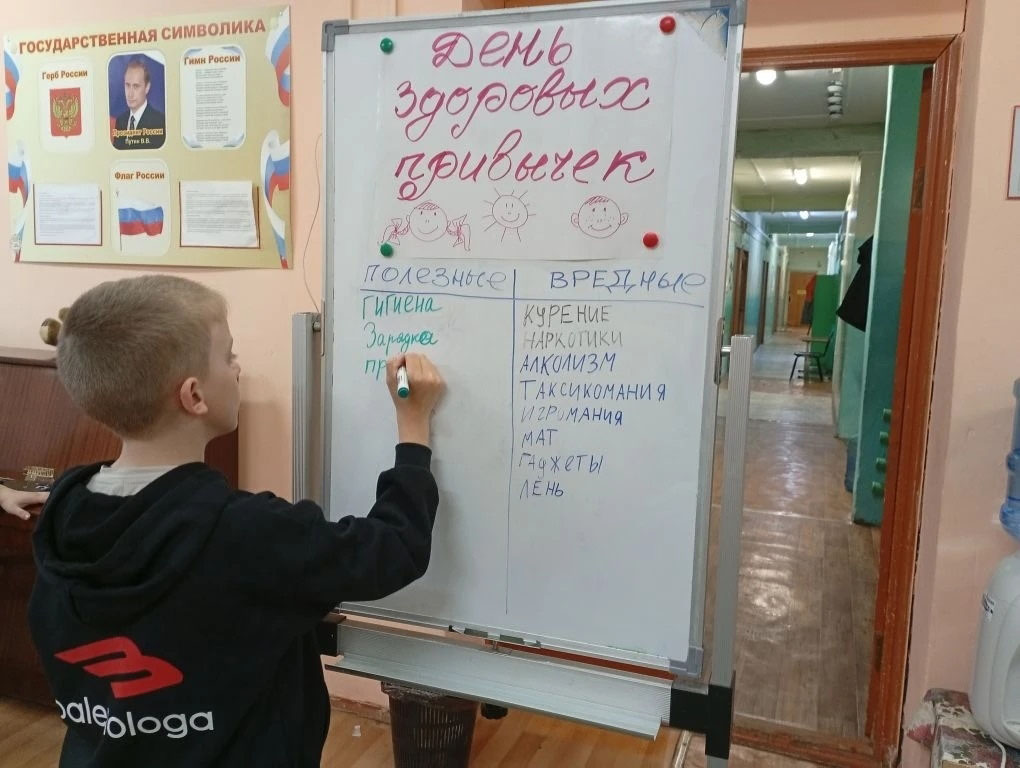 ГОСУДАРСТВЕННАЯ СИМВОЛИКА
Герб России
Президент России
Путин В.В.
Гимн России
Флаг России
День
здоровых
привычек
ПОЛЕЗНЫЕ
ГИГИЕНА
Зарядка
пр
ВРЕДНЫЕ
КУРЕНИЕ
НАРКОТИКИ
АЛКОЛИЗМ
ТАКСИКОМАНИЯ
ИГРОМАНИЯ
МАТ
ГАДЖЕТЫ
ЛЕНЬ